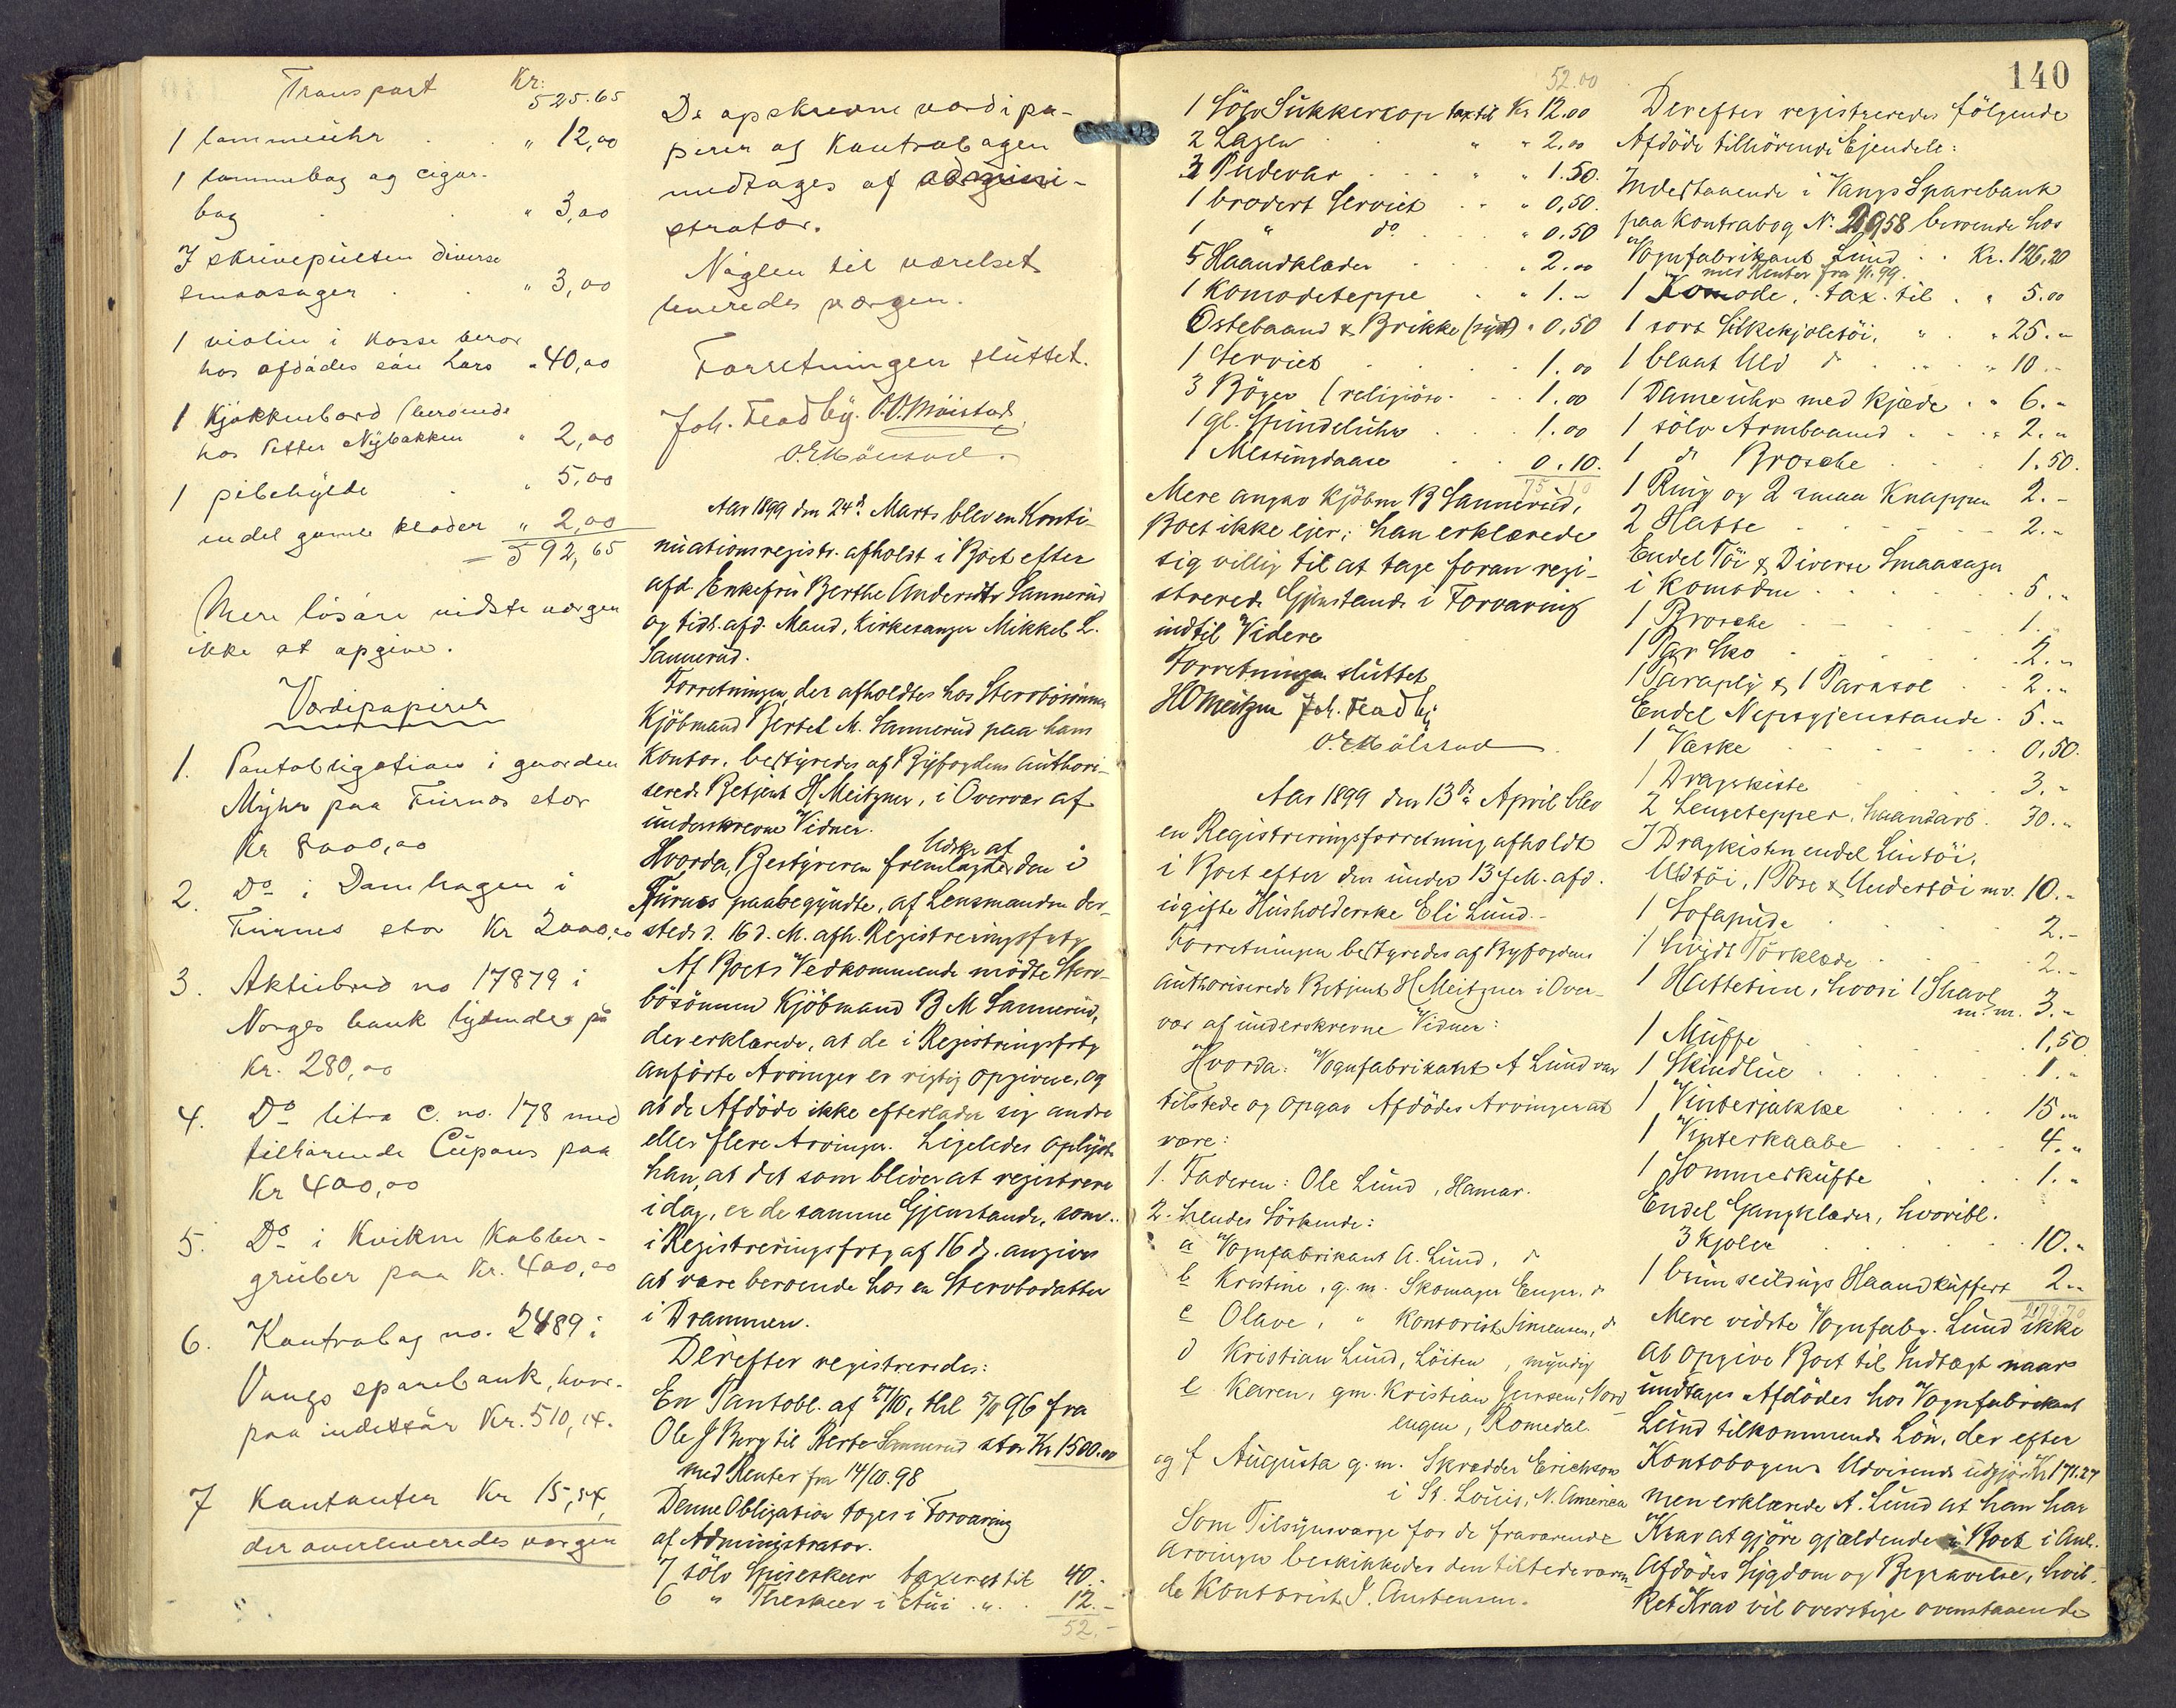 Transport Kr: 525.65
1 lommeuhr " 12,00
1 lommebog og cigar-
bog " 3,00
I skrivepulten diverse
smaasager " 3,00
1 violin i kasse beror
hos afdødes søn Lars " 40,00
1 Kjøkkenbord (beroende
hos Petter Nybakken " 2,00
1 pibehylde " 5,00
endel gamle klæder " 2,00
592,65
Mere løsøre vidste værgen
ikke at opgive.
Værdipapirer
1. Pantobligation i gaarden
Myhr paa Furnæs stor
Kr 8000,00
2. Do i Damhagen i
Furnes stor Kr 2000,00
3. Aktiebrev no 17879 i
Norges bank lydende på
Kr. 280,00
4. Do litra C. no. 178 med
tilhørende Cupons paa
Kr 400,00
5. Do i Kvikne Kobber-
gruber paa Kr. 400,00
6. Kontrabog no. 2489 i
Vangs sparebank, hvor-
paa indestår Kr. 510,14.
7 Kontanter Kr 15,54,
der overleveredes værgen
De opskrevne værdipa-
pirer og Kontrabogen
medtages af admini-
strator.
Nøglen til værelset
leveredes værgen.
Forretningen sluttet.
Joh. Feadby. O.O. Møistad
O. E. Mölstad.
Aar 1899 den 24de Marts blev en Konti-
nuationsregistr. afholdt i Boet efter
afd. Enkefru Berthe Andersdtr Sannerud
og tidl. afd. Mand, Kirkesanger Mikkel L.
Sannerud.
Forretningen, der afholdtes hos Stervbosønnen
Kjøbmand Bertel M. Sannerud paa hans
Kontor, bestyredes af Byfogdens authori-
serede Betjent H Meitzner, i Overvær af
underskrevne Vidner.
Hvorda, Bestyreren fremlagde Udskr. af den i
Furnes paabegyndte, af Lensmanden der-
steds d. 16 d. M. afh. Registreringsfrtg
Af Boets Vedkommende mødte Sterv-
bosønnen Kjøbmand B M Sannerud,
der erklærede, at de i Registringsfrtg
anførte Arvinger er rigtig opgivne, og
at de Afdøde ikke efterlader sig andre
eller flere Arvinger. Ligeledes oplyste
han, at det som bliver at registrere
i dag, er de samme Gjenstande, som
i Registreringsfrtg af 16 ds. angives
at være beroende hos en Stervbodatter
i Drammen.
Derefter registreredes:
En Pantobl. af 27/10, thl. 5/11 96 fra
Ole J Berg til Berte Sannerud stor Kr 1500.00
med Renter fra 14/10.98
Denne Obligation toges i Forvaring
af Administrator.
7 sølv Spiseskeer taxeret til 40.-
6 " Theskeer i Etui " 12.-
52.-
140
52.00
1 Sølv Sukkerkop tax til Kr 12.00
2 Lagen " " 2.00
3 Pudevar " " 1.50.
1 broderet Serviet " 0,50.
1 " do " 0.50
5 Haandklæder " 2.00
1 Komodeteppe " 1.-
Ostebaand & Brikke (sydt) " 0,50
1 Serviet 1.00
3 Bøger (religiøse 1.00
1 gl. Spindeluhr 1.00
1 Messingdaase 0.10.
75 10
Mere angav Kjøbm B Sannerud,
Boet ikke ejer; han erklærede
sig villig til at tage foran regi-
strerede Gjenstande i Forvaring
indtil Videre
Forretningen sluttet
HMeitzner Joh. Feadby
O. E. Mölstad
Aar 1899 den 13de April blev
en Registreringsforretning afholdt
i Boet efter den under 13 f.M. afd.
ugifte Husholderske Eli Lund.
Forretningen bestyredes af Byfogdens
authoriserede Betjent H Meitzner i Over-
vær af underskrevne Vidner:
Hvorda: Vognfabrikant A Lund var
tilstede og opgav Afdødes Arvinger at
være:
1. Faderen: Ole Lund, Hamar.
2. hendes Søskende:
a Vognfabrikant A. Lund, d
b Kristine, g. m. Skomager Enger, d
c Olave, " Kontorist Simensen, d
d Kristian Lund, Løiten, myndig
e Karen, gm. Kristian Jensen, Nord-
engen, Romedal.
og f Augusta g. m. Skrædder Erichson
i St. Louis, N. America
Som Tilsynsværge for de fraværende
Arvinger beskikkedes den tilstedeværen-
de Kontorist J. Amtensen.
Derefter registreredes følgende
Afdøde tilhørende Ejendele:
Indestaaende i Vangs Sparebank
paa Kontrabog No. 2958 beroende hos
Vognfabrikant Lund Kr. 126,20
med Renter fra 1/1.99.
1 Komode, tax. til " 5.00
1 sort Silkekjoletøi, " " 25.-
1 blaat Uld d " 10.-
1 Dameuhr med kjæde " 6.-
1 sølv Armbaand " 2.-
1 d Brosche 1.50.
1 Ring og 2 smaa Knapper 2.-
2 Hatte 2.-
Endel Tøi & Diverse Smaasager
i Komoden 5.-
1 Brosche 1.-
1 Par Sko 2.-
1 Paraply & 1 Parasol 2.-
Endel Nipsgjenstande 5.-
1 Væske 0,50.
1 Dragkiste 3.-
2 Sengetepper, haandarb. 30.-
I Dragkisten endel Lintøi,
Uldtøi, 1 Pose & Undertøi m.v. 10.-
1 Sofapude 2.-
1 hvidt Tørklæde 2.-
1 Hatteeske, hvori 1 Shavl
m. m. 3.-
1 Muffe 1,50
1 Skindlue 1.-
1 Vinterjakke 15.-
1 Vinterkaabe 4.-
1 Sommerkufte 1.-
Endel Gangklæder, hvoribl.
3 kjoler 10.-
1 brun seildugs Haandkuffert 2.-
279.70
Mere vidste Vognfabr. Lund ikke
at opgive Boet til Indtægt naar
undtages Afdødes hos Vognfabrikant
Lund tilkommende Løn, der efter
Kontobogens Udvisende udgjør Kr 171.27
men erklærede A. Lund at han har
Krav at gjøre gjældende i Boet i Anl.
Afdødes Sygdom og Begravelse, hvil-
ket Krav vil overstige ovenstaaende